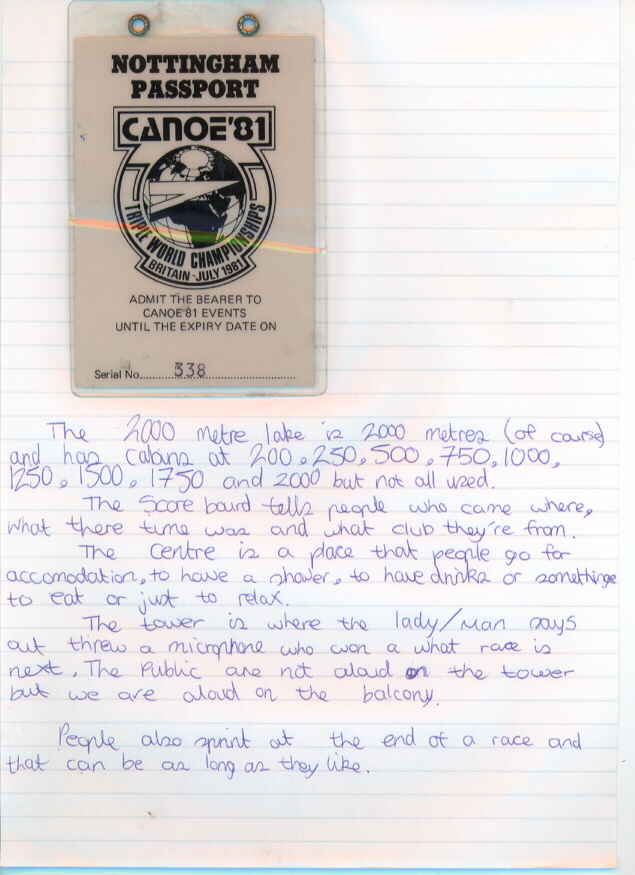 NOTTINGHAM
PASSPORT
CANOE'81
TRIPLE WORLD CHAMPIONSHIPS
BRITAIN - JULY 1981
ADMIT THE BEARER TO
CANOE'81 EVENTS
UNTIL THE EXPIRY DATE ON
Serial No. 338
The 2000 metre lake is 2000 metres (of course)
and has cabins at 200, 250, 500, 750, 1000,
1250, 1500, 1750 and 2000 but not all used.
The Score board tells people who came where,
what there time was and what club they're from.
The Centre is a place that people go for
accomodation, to have a shower, to have drinks or somethinge
to eat or just to relax.
The tower is where the lady/man says
out threw a microphone who won a what race is
next. The Public are not alaud on the tower
but we are alaud on the balcony.
People also sprint at the end of a race and
that can be as long as they like.